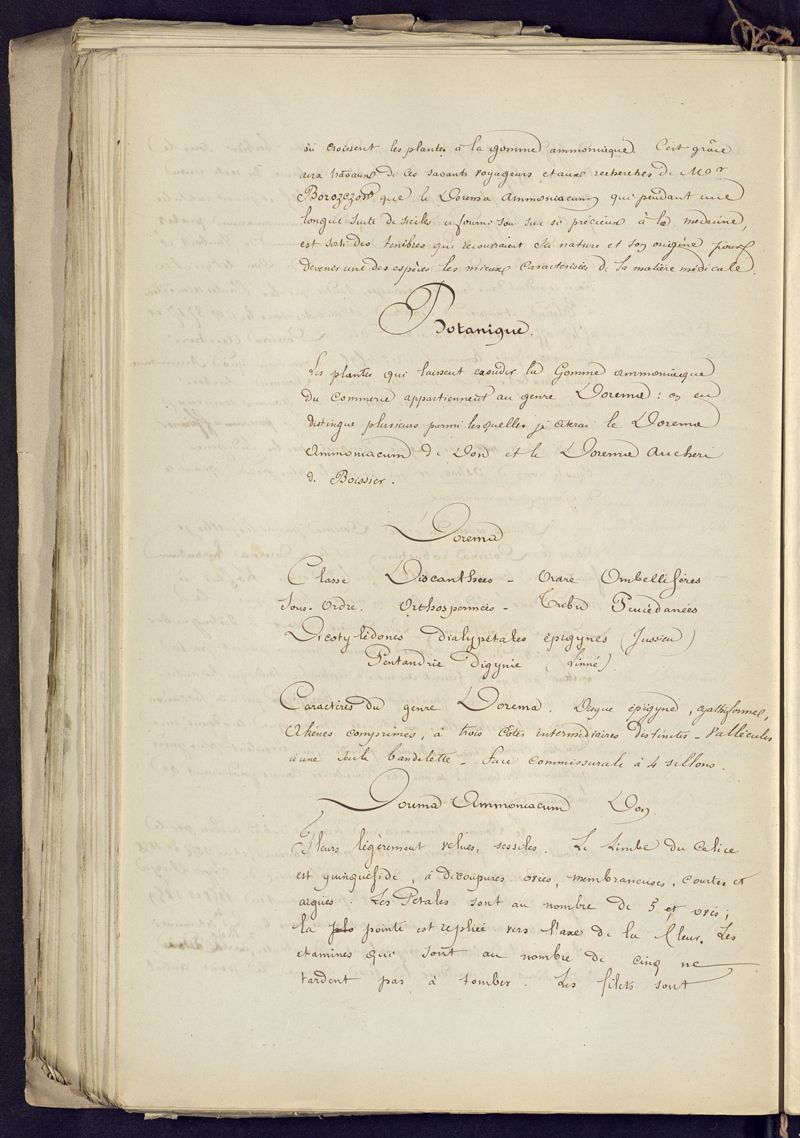 où croissent les plantes à la gomme ammoniaque. C'est grâce
aux travaux de ces savants voyageurs et aux recherches de Mr
Borozczow que le Dorema Ammoniacum qui pendant une
longue suite de siècles a fourni son suc si précieux à la médecine,
est sorti des ténèbres qui recouvraient sa nature et son origine pour
devenir une des espèces les mieux caractérisées de la matière médicale.
Botanique.
Les plantes qui laissent exsuder la Gomme ammoniaque
du commerce appartiennent au genre Dorema : on en
distingue plusieurs parmi lesquelles je citerai le Dorema
Ammoniacum de Don et le Dorema Aucheri
de Boissier.
Dorema
Classe Discanthées - Ordre Ombellifères
Sous-Ordre. Orthospermées - Tribu Peucédanées
Dicotylédones dialypétales épigynes (Jussieu)
Pentandrie Digynie (Linné).
Caractères du genre Dorema. Disque épigyne, cyathiforme,
Akènes comprimés, à trois côtes intermédiaires distinctes - Vallécules
à une seule bandelette - face commissurale à 4 sillons.
Dorema Ammoniacum Don
Fleurs légèrement velues, sessiles. Le Limbe du Calice
est quinquéfide, à découpures ovées, membraneuses, courtes et
aigües. Les Pétales sont au nombre de 5 et ovés;
la pointe est repliée vers l'axe de la fleur. Les
étamines qui sont au nombre de cinq ne
tardent pas à tomber. Les filets sont